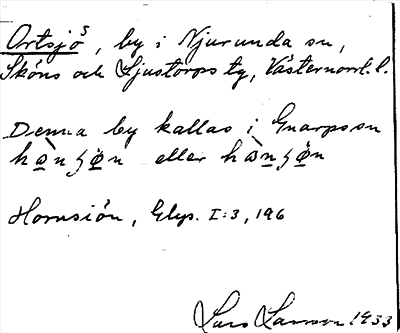 Ortsjö s, by i Njurunda sn,
Sköns och Ljustorps tg, Västernorrl. l.
Denna by kallas i Gnarps sn
eller
Hornsiön, Glys. I:3, 196
Lars Larsson 1933